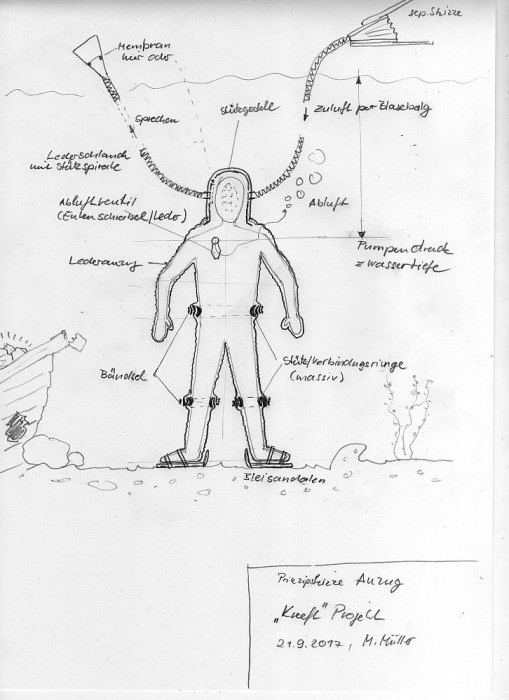 sep. Skizze
Membran
nur oder
sprechen
Stützgestell
Zuluft per Blasebalg
Lederschlauch
mit Stützspirale
Abluftventil
(Entenschnäbel/Leder)
Abluft
Pumpendruck
Wassertiefe
Lederanzug
Bändsel
Stütz/Verbindungsringe
(massiv)
Bleisandalen
Prinzipskizze Anzug
Projekt
21.9.2017, M. Müller